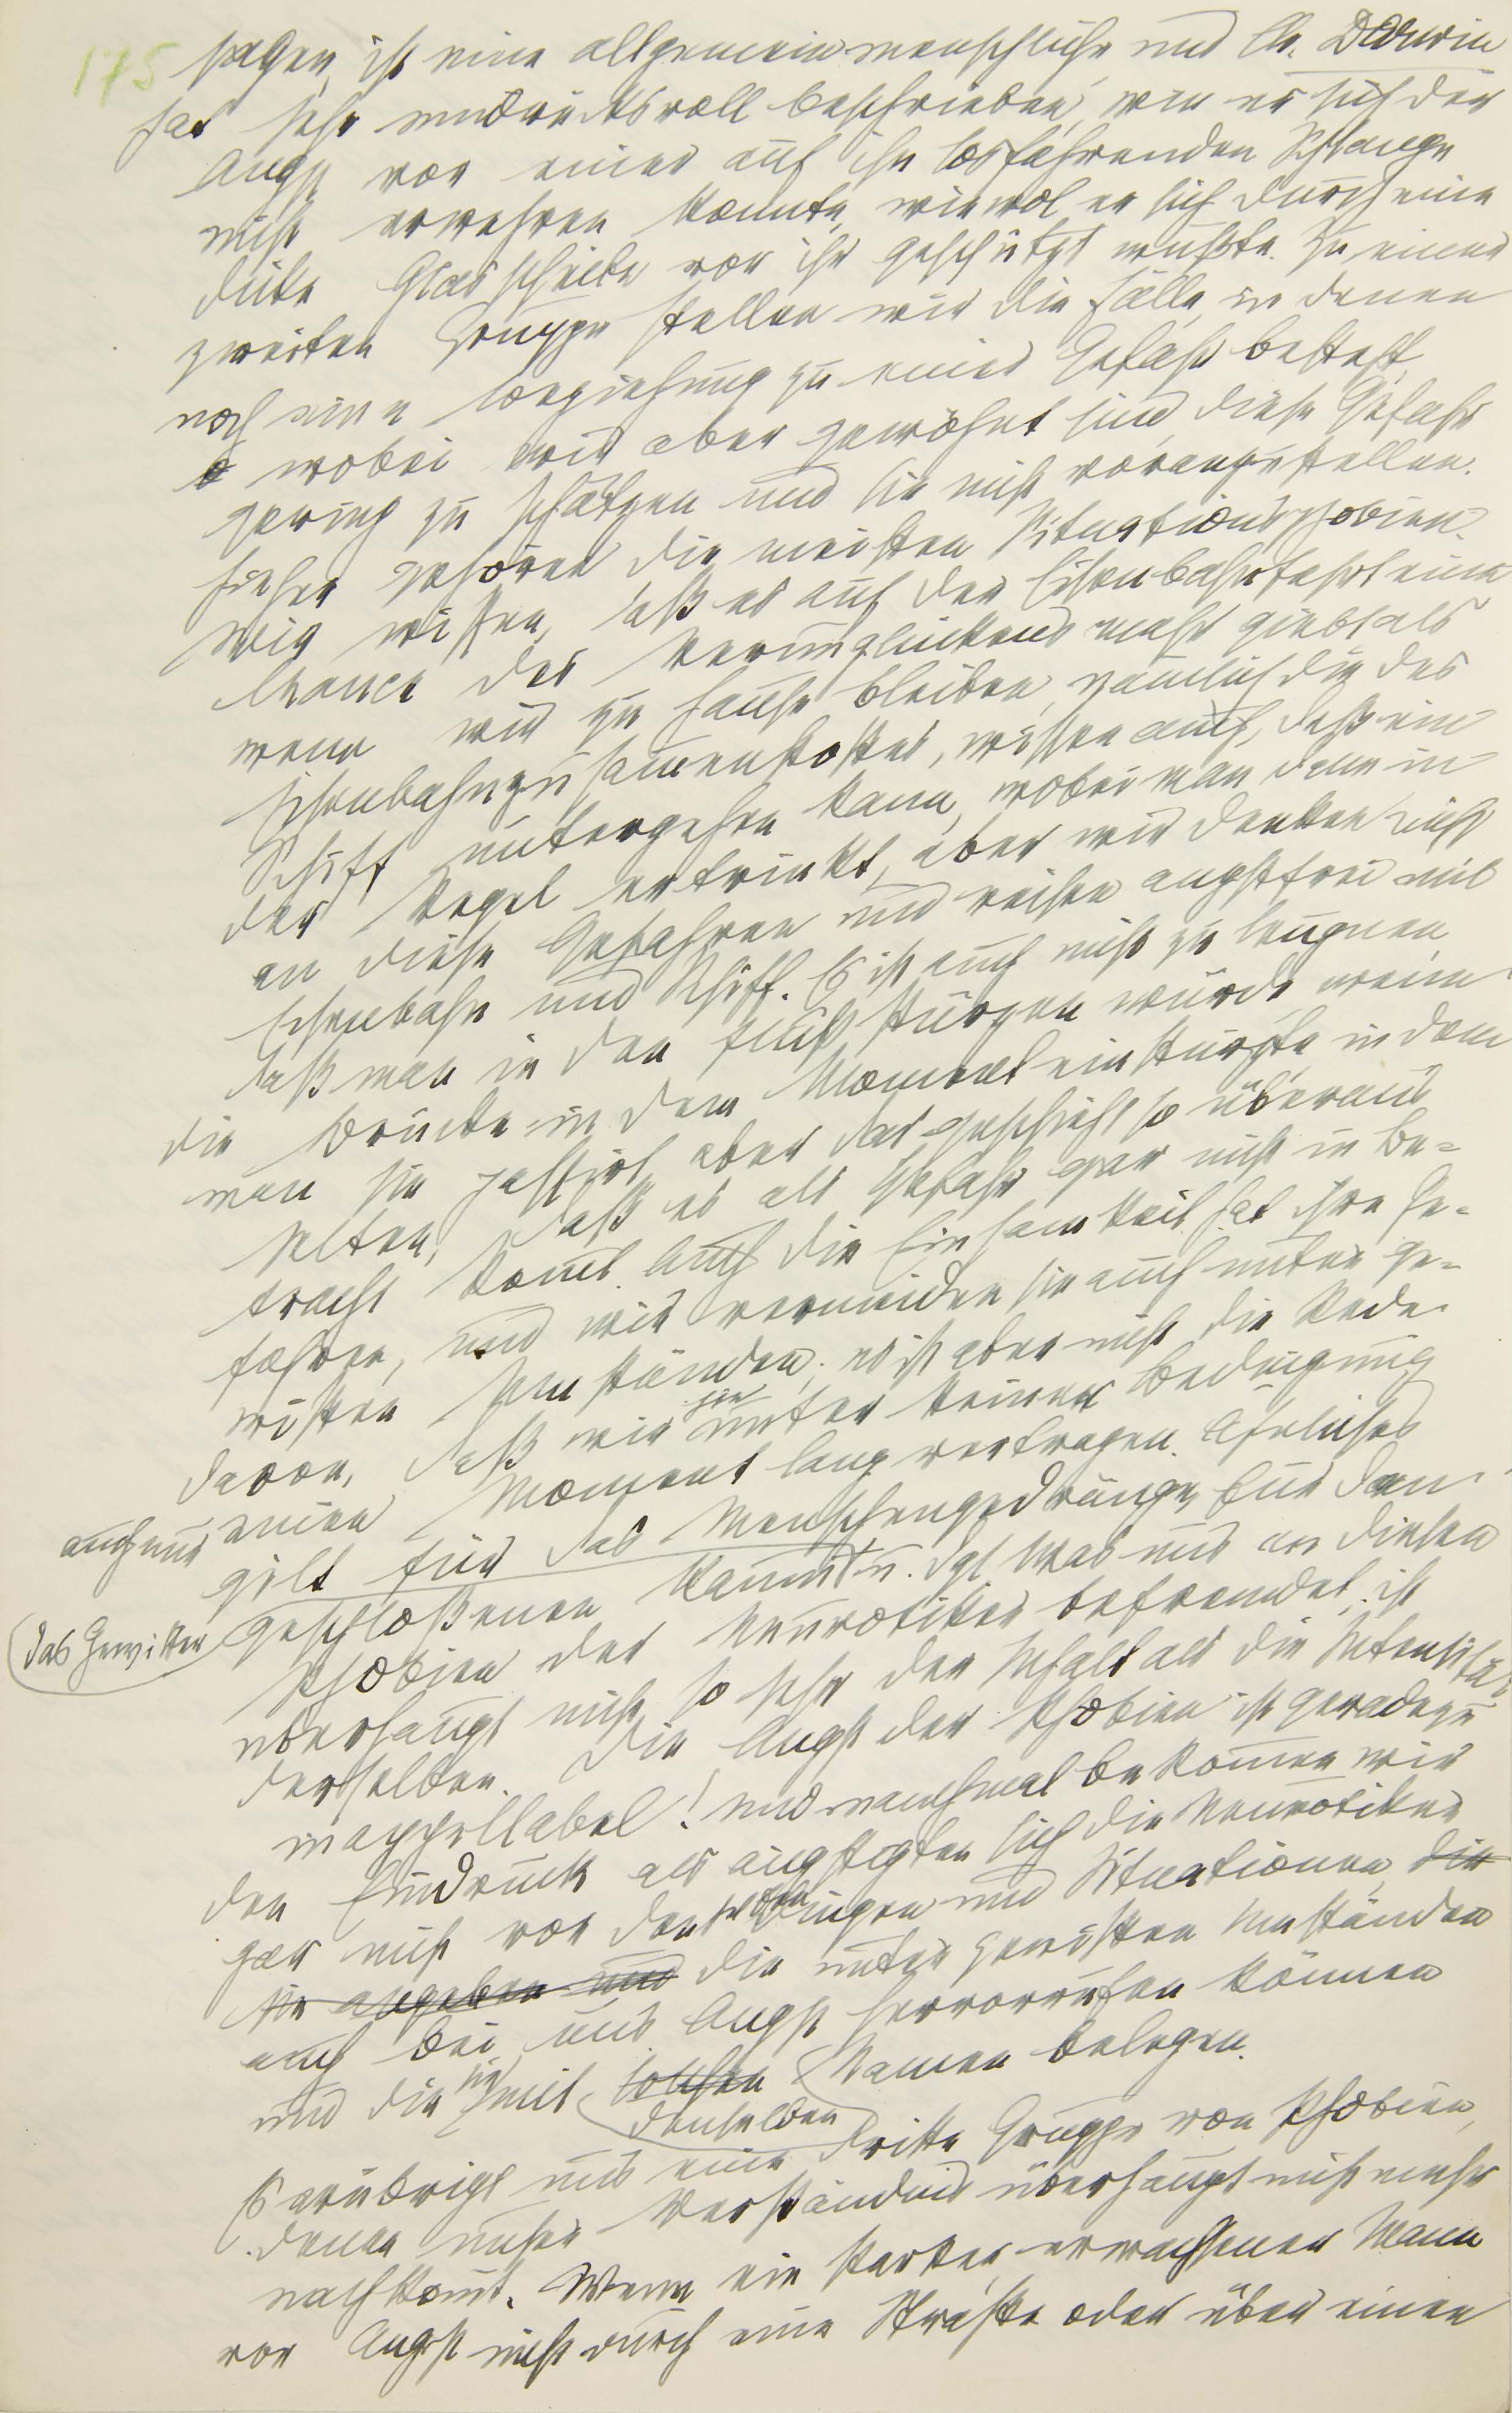 175 sagen, ist eine allgemein menschliche und Ch. Darwin
hat sehr eindrucksvoll beschrieben, wie er sich der
Angst vor einer auf ihn losfahrenden Schlange
nicht erwehren konnte, wiewol er sich durch eine
dicke Glasscheibe vor ihr geschützt wußte. Zu einer
zweiten Gruppe stellen wir die Fälle, in denen
noch eine Beziehung zu einer Gefahr besteht,
wobei wir aber gewöhnt sind, diese Gefahr
gering zu schätzen und sie nicht voranzustellen.
Hieher gehören die meisten Situationsphobien.
Wir wissen, daß es auf der Eisenbahnfahrt eine
Chance des Verunglückens mehr giebt als
wenn wir zu Hause bleiben, nämlich die des
Eisenbahnzusammenstoßes, wissen auch, daß ein
Schiff untergehen kann, wobei man dann in
der Regel ertrinkt, aber wir denken nicht
an diese Gefahren und reisen angstfrei mit
Eisenbahn und Schiff. Es ist auch nicht zu leugnen
daß man in den Fluß stürzen würde, wenn
die Brücke in dem Moment einstürzte, in dem
man sie passirt, aber das geschieht so überaus
selten, daß es als Gefahr gar nicht in Be-
tracht komt. Auch die Einsamkeit hat ihre Ge-
fahren, und wir vermeiden sie auch unter ge-
wißen Umständen; es ist aber nicht die Rede
davon, daß wir sie unter keiner Bedingung
auch nur einen Moment lang vertragen. Ähnliches
gilt für das Menschengedränge, für den
geschloßenen Raum, das Gewitter u. dgl. Was uns an diesen
Phobien der Neurotiker befremdet, ist
überhaupt nicht so sehr der Inhalt als die Intensität
derselben. Die Angst der Phobien ist geradezu
inappellabel! Und manchmal bekommen wir
den Eindruck als ängstigten sich die Neurotiker
gar nicht vor denselben Dingen und Situationen, die
sie angeben und die unter gewißen Umständen
auch bei uns Angst hervorrufen können
und die sie mit solchen denselben Namen belegen.
Es erübrigt uns eine dritte Gruppe von Phobien,
denen unser Verständnis überhaupt nicht mehr
nachkomt. Wenn ein starker, erwachsener Mann
vor Angst nicht durch eine Straße oder über einen